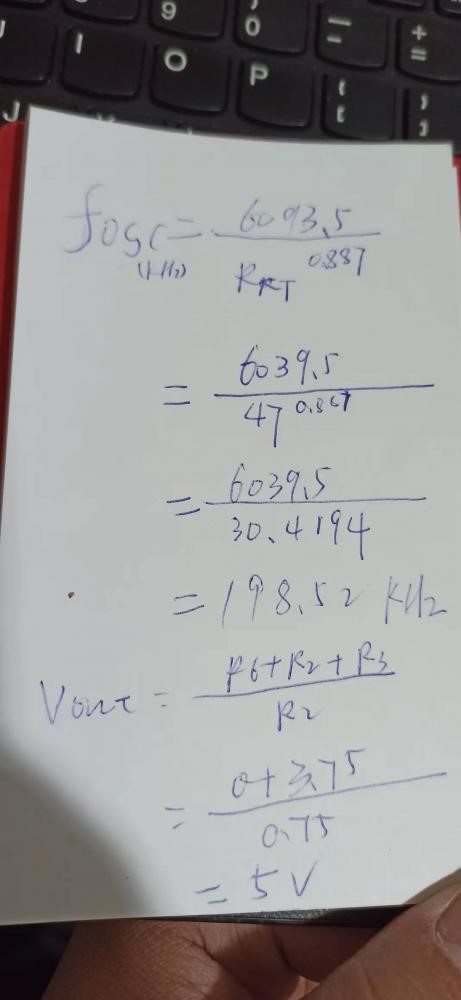 9
0
—
=
+
=
I
O
P
{
[
}
]
J
fosc = 6093.5 / R_RT^0.887
(kHz)
= 6039.5 / 47^0.887
= 6039.5 / 30.4194
= 198.52 KHz
Vout = R6+R2+R3 / R2
= 0+3.75 / 0.75
= 5V